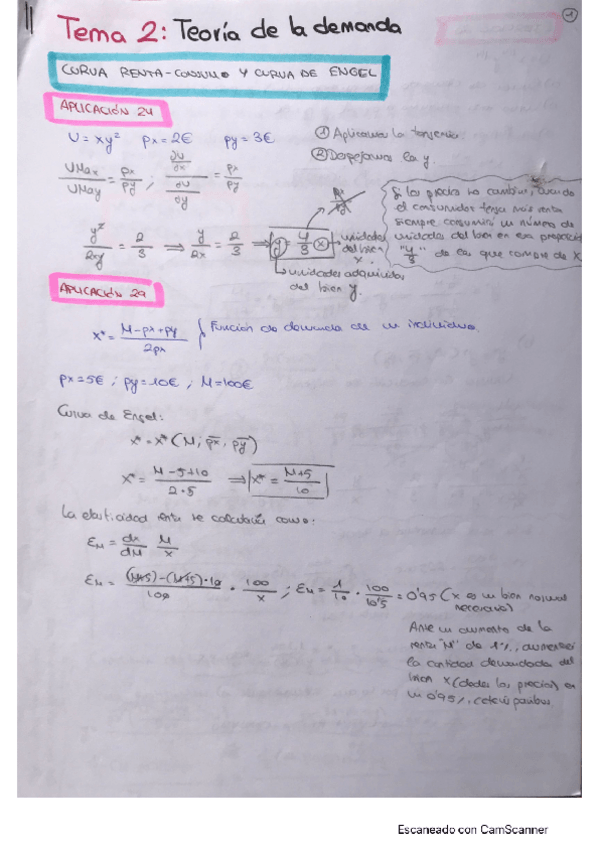 1
Tema 2: Teoría de la demanda
CURVA RENTA-CONSUMO Y CURVA DE ENGEL
APLICACIÓN 24
U = xy² px = 2€ py = 3€
① Aplicamos la tangencia.
② Despejamos la y.
UMax/UMay = px/py ; (∂U/∂x)/(∂U/∂y) = px/py
px/py
Si los precios no cambian, cuando
el consumidor tenga más renta
siempre consumirá un número de
unidades del bien en esa proporción
"4/3" de las que compre de x.
y²/2xy = 2/3 ⟹ y/2x = 2/3 ⟹ y = 4/3 x → unidades del bien x.
unidades adquiridas
del bien y.
APLICACIÓN 29
x* = (M-px+py)/2px } Función de demanda de un individuo.
px = 5€ ; py = 10€ , M = 100€
Curva de Engel:
x* = x* (M, p̅x̅, p̅y̅)
x* = (M-5+10)/(2·5) ⟹ x* = (M+5)/10
La elasticidad renta se calcularía como:
εM = dx/dM M/x
εM = ((M+5)-(M+5)·10)/100 · 100/x ; εM = 1/10 · 100/10'5 = 0'95 (x es un bien normal
necesario)
Ante un aumento de la
renta "M" de 1%, aumentará
la cantidad demandada del
bien x (dados los precios) en
un 0'95%, ceteris paribus.
Escaneado con CamScanner